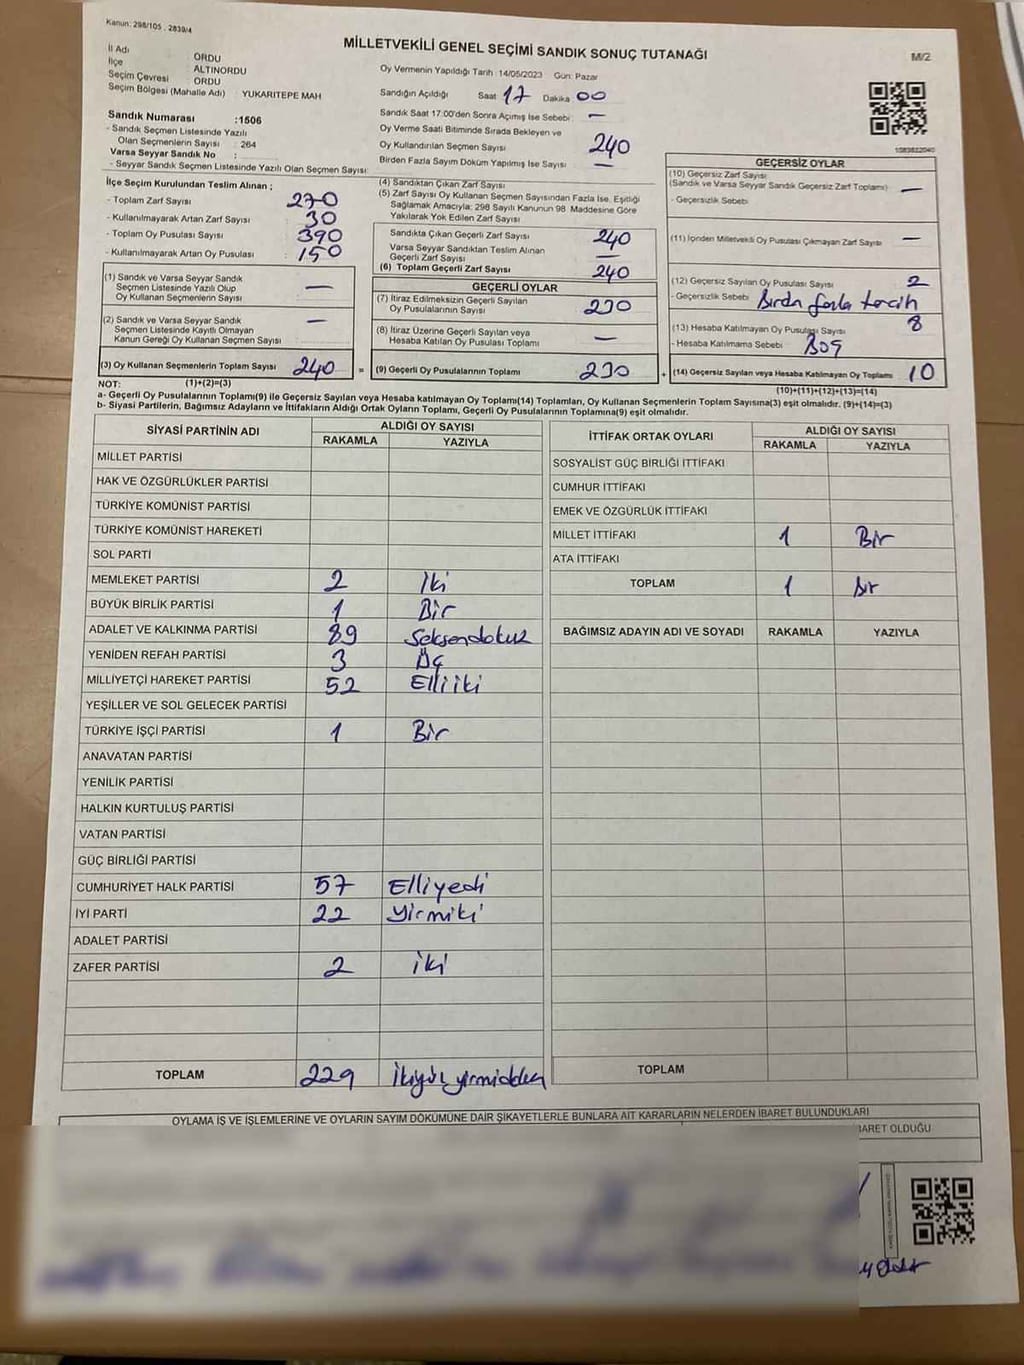 Kanun: 298/105 , 2839/4
MİLLETVEKİLİ GENEL SEÇİMİ SANDIK SONUÇ TUTANAĞI
M/2
İl Adı ORDU
İlçe ALTINORDU
Seçim Çevresi ORDU
Seçim Bölgesi (Mahalle Adı) YUKARITEPE MAH
Sandık Numarası :1506
- Sandık Seçmen Listesinde Yazılı
Olan Seçmenlerin Sayısı : 264
Varsa Seyyar Sandık No :
- Seyyar Sandık Seçmen Listesinde Yazılı Olan Seçmen Sayısı:
Oy Vermenin Yapıldığı Tarih :14/05/2023 Gün: Pazar
Sandığın Açıldığı Saat 17 Dakika 00
Sandık Saat 17:00'den Sonra Açımış İse Sebebi : —
Oy Verme Saati Bitiminde Sırada Bekleyen ve
Oy Kullandırılan Seçmen Sayısı 240
Birden Fazla Sayım Döküm Yapılmış İse Sayısı —
1083822040
İlçe Seçim Kurulundan Teslim Alınan ;
- Toplam Zarf Sayısı : 270
- Kullanılmayarak Artan Zarf Sayısı : 30
- Toplam Oy Pusulası Sayısı : 390
- Kullanılmayarak Artan Oy Pusulası : 150
(1) Sandık ve Varsa Seyyar Sandık
Seçmen Listesinde Yazılı Olup
Oy Kullanan Seçmenlerin Sayısı —
(2) Sandık ve Varsa Seyyar Sandık
Seçmen Listesinde Kayıtlı Olmayan
Kanun Gereği Oy Kullanan Seçmen Sayısı —
(3) Oy Kullanan Seçmenlerin Toplam Sayısı 240 =
(4) Sandıktan Çıkan Zarf Sayısı
(5) Zarf Sayısı Oy Kullanan Seçmen Sayısından Fazla İse, Eşitliği
Sağlamak Amacıyla; 298 Sayılı Kanunun 98. Maddesine Göre
Yakılarak Yok Edilen Zarf Sayısı
Sandıkta Çıkan Geçerli Zarf Sayısı 240
Varsa Seyyar Sandıktan Teslim Alınan
Geçerli Zarf Sayısı —
(6) Toplam Geçerli Zarf Sayısı 240
GEÇERLİ OYLAR
(7) İtiraz Edilmeksizin Geçerli Sayılan
Oy Pusulalarının Sayısı 230
(8) İtiraz Üzerine Geçerli Sayılan veya
Hesaba Katılan Oy Pusulası Toplamı —
(9) Geçerli Oy Pusulalarının Toplamı 230 +
GEÇERSİZ OYLAR
(10) Geçersiz Zarf Sayısı
(Sandık ve Varsa Seyyar Sandık Geçersiz Zarf Toplamı) —
- Geçersizlik Sebebi
(11) İçinden Milletvekili Oy Pusulası Çıkmayan Zarf Sayısı —
(12) Geçersiz Sayılan Oy Pusulası Sayısı 2
- Geçersizlik Sebebi Birden fazla tercih
(13) Hesaba Katılmayan Oy Pusulası Sayısı 8
- Hesaba Katılmama Sebebi Boş
(14) Geçersiz Sayılan veya Hesaba Katılmayan Oy Toplamı 10
NOT: (1)+(2)=(3)
(10)+(11)+(12)+(13)=(14)
a- Geçerli Oy Pusulalarının Toplamı(9) ile Geçersiz Sayılan veya Hesaba katılmayan Oy Toplamı(14) Toplamları, Oy Kullanan Seçmenlerin Toplam Sayısına(3) eşit olmalıdır. (9)+(14)=(3)
b- Siyasi Partilerin, Bağımsız Adayların ve İttifakların Aldığı Ortak Oyların Toplamı, Geçerli Oy Pusulalarının Toplamına(9) eşit olmalıdır.
SİYASİ PARTİNİN ADI ALDIĞI OY SAYISI
RAKAMLA YAZIYLA
MİLLET PARTİSİ
HAK VE ÖZGÜRLÜKLER PARTİSİ
TÜRKİYE KOMÜNİST PARTİSİ
TÜRKİYE KOMÜNİST HAREKETİ
SOL PARTİ
MEMLEKET PARTİSİ 2 İki
BÜYÜK BİRLİK PARTİSİ 1 Bir
ADALET VE KALKINMA PARTİSİ 89 Seksendokuz
YENİDEN REFAH PARTİSİ 3 Üç
MİLLİYETÇİ HAREKET PARTİSİ 52 Elliiki
YEŞİLLER VE SOL GELECEK PARTİSİ
TÜRKİYE İŞÇİ PARTİSİ 1 Bir
ANAVATAN PARTİSİ
YENİLİK PARTİSİ
HALKIN KURTULUŞ PARTİSİ
VATAN PARTİSİ
GÜÇ BİRLİĞİ PARTİSİ
CUMHURİYET HALK PARTİSİ 57 Elliyedi
İYİ PARTİ 22 Yirmiki
ADALET PARTİSİ
ZAFER PARTİSİ 2 İki
TOPLAM 229 İkiyüzyirmidokuz
İTTİFAK ORTAK OYLARI ALDIĞI OY SAYISI
RAKAMLA YAZIYLA
SOSYALİST GÜÇ BİRLİĞİ İTTİFAKI
CUMHUR İTTİFAKI
EMEK VE ÖZGÜRLÜK İTTİFAKI
MİLLET İTTİFAKI 1 Bir
ATA İTTİFAKI
TOPLAM 1 Bir
BAĞIMSIZ ADAYIN ADI VE SOYADI RAKAMLA YAZIYLA
TOPLAM
OYLAMA İŞ VE İŞLEMLERİNE VE OYLARIN SAYIM DÖKÜMÜNE DAİR ŞİKAYETLERLE BUNLARA AİT KARARLARIN NELERDEN İBARET BULUNDUKLARI
BARET OLDUĞU